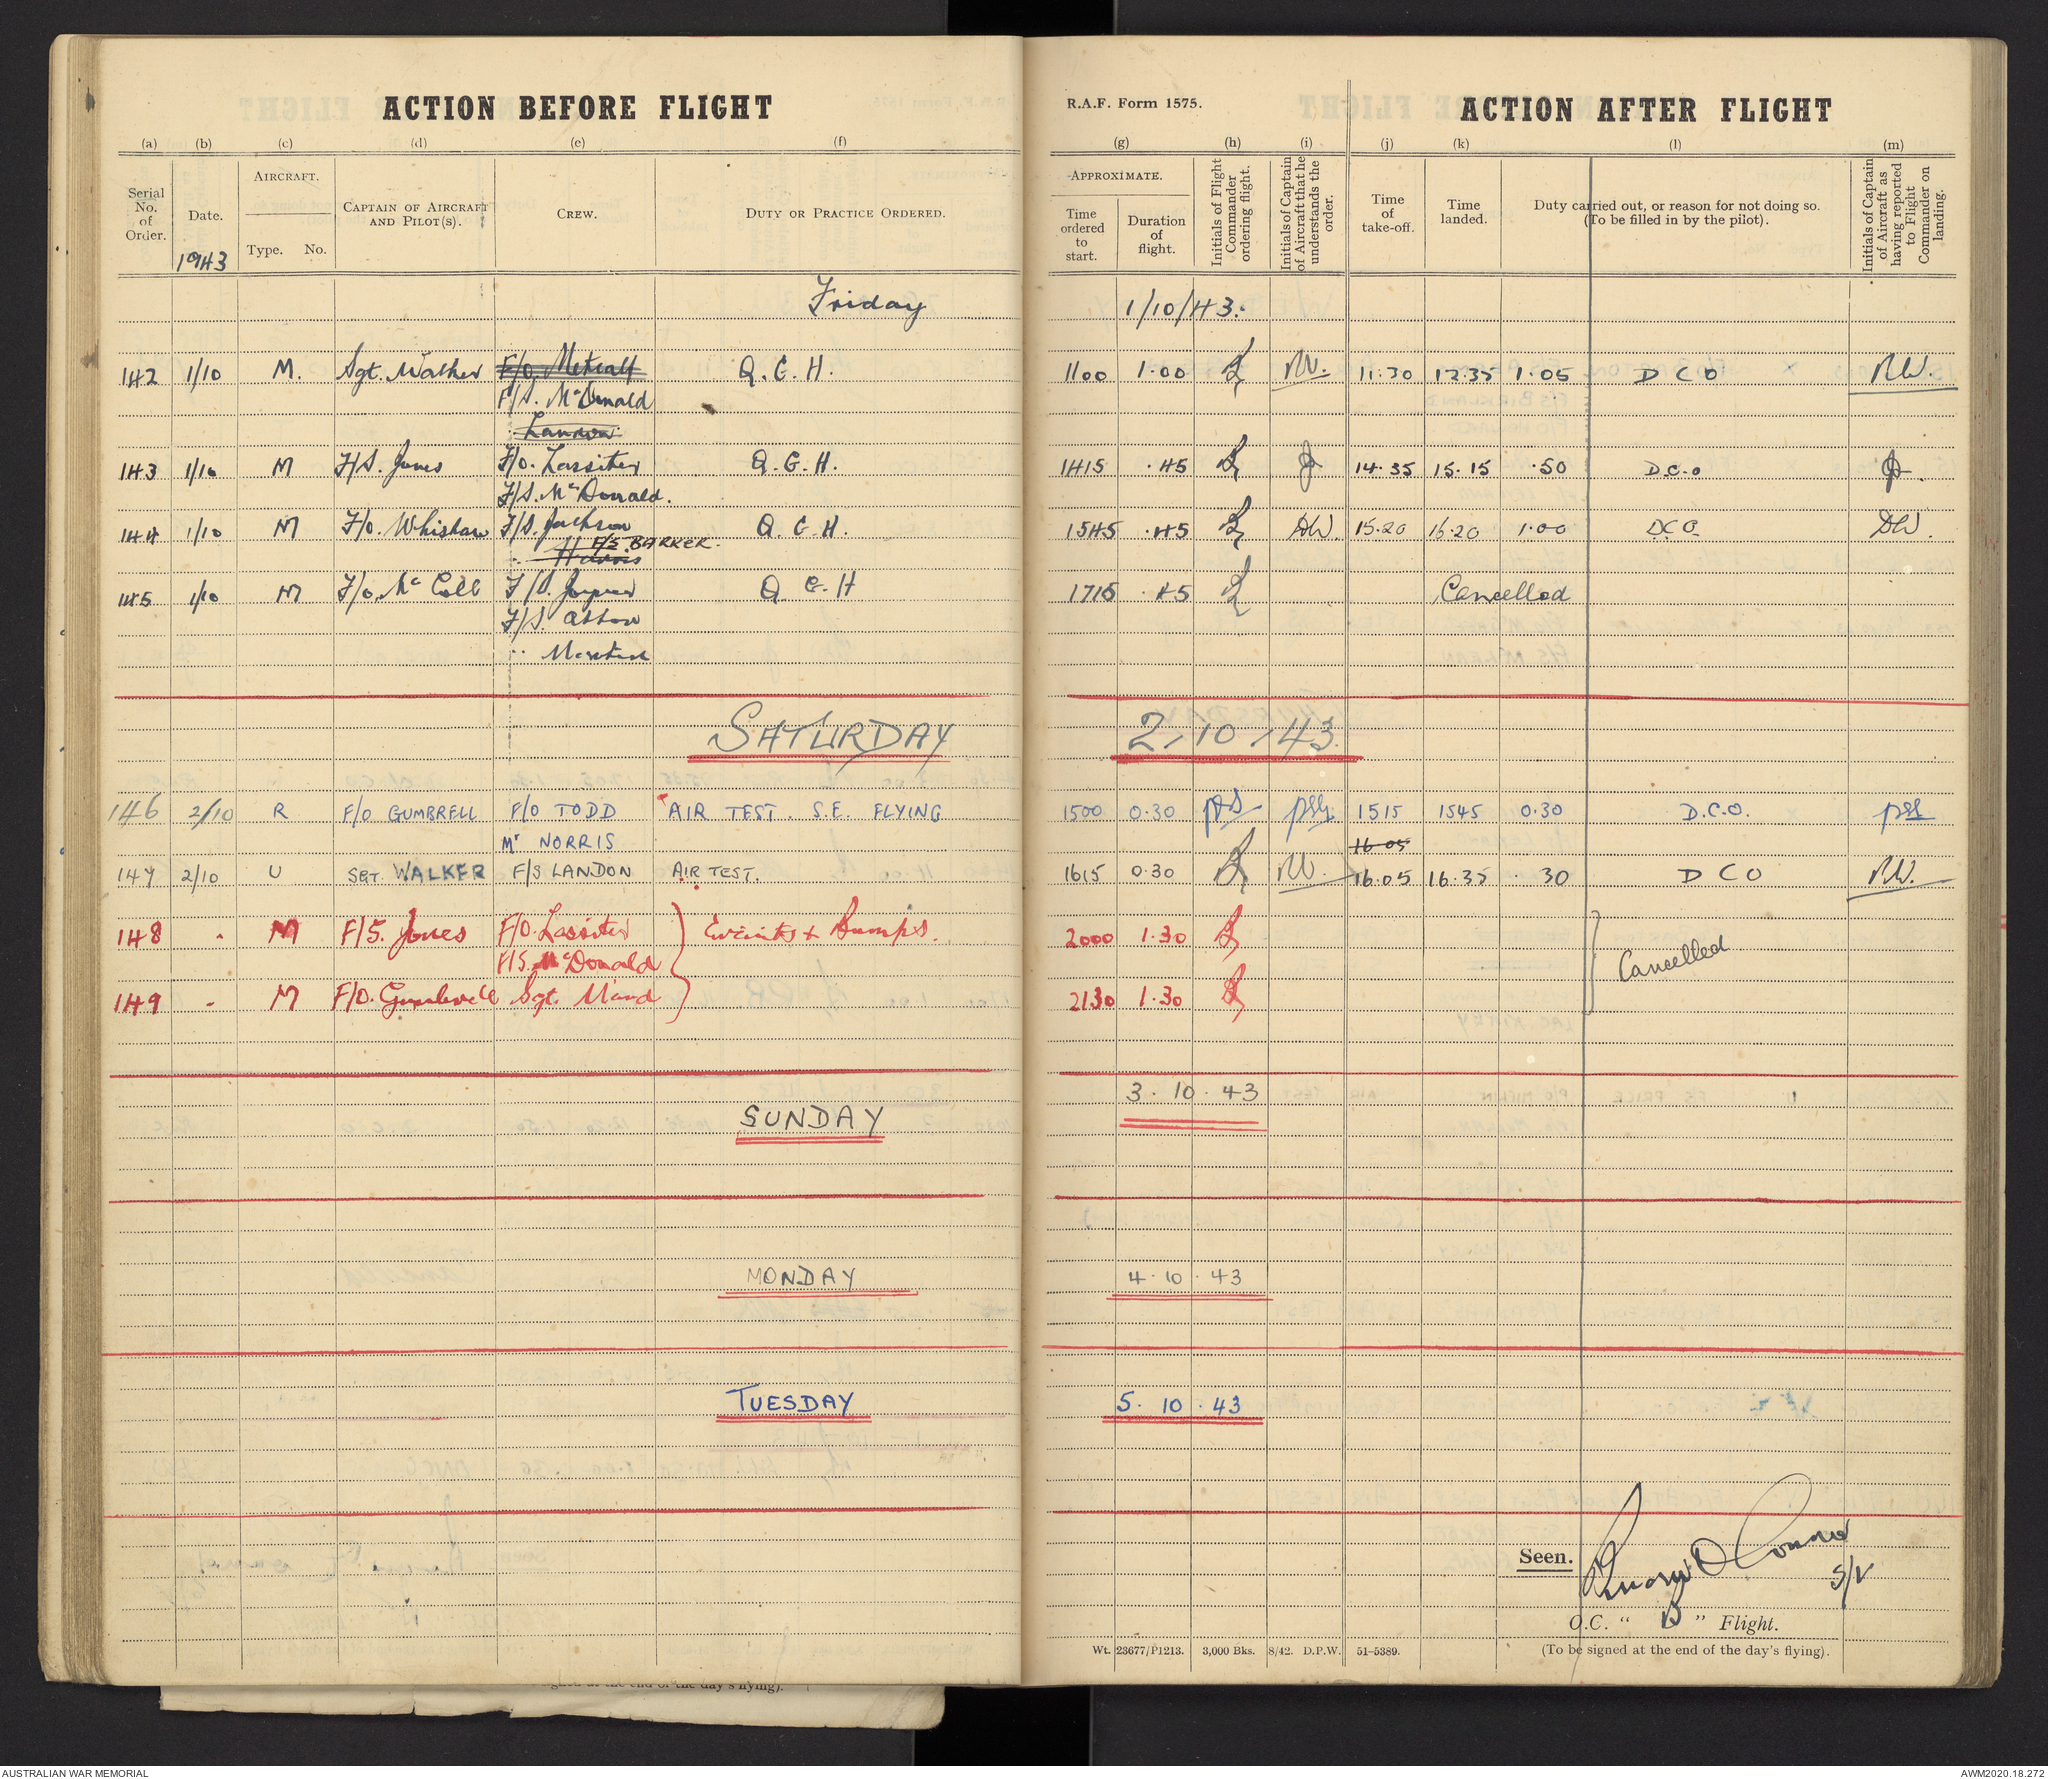 ACTION BEFORE FLIGHT
R.A.F. Form 1575.
ACTION AFTER FLIGHT
(a) (b) (c) (d) (e) (f) (g) (h) (i) (j) (k) (l) (m)
Serial No. of Order.
Date.
1943
AIRCRAFT.
Type. No.
CAPTAIN OF AIRCRAFT AND PILOT(S).
CREW.
DUTY OR PRACTICE ORDERED.
APPROXIMATE.
Time ordered to start.
Duration of flight.
Initials of Flight Commander ordering flight.
Initials of Captain of Aircraft that he understands the order.
Time of take-off.
Time landed.
Duty carried out, or reason for not doing so.
(To be filled in by the pilot).
Initials of Captain of Aircraft as having reported to Flight Commander on landing.
Friday 1/10/43.
142 1/10 M. Sgt. Walker F/O. Metcalf Q.G.H. 1100 1.00 RW. 11.30 12.35 1.05 D C O RW.
F/S. McDonald
" Landon
143 1/10 M F/S. Jones F/O. Lassiter Q.G.H. 1415 .45 J 14.35 15.15 .50 D.C.O J.
F/S. McDonald.
144 1/10 M F/O. Whishaw F/S. Jackson Q.G.H. 1545 .45 DW. 15.20 16.20 1.00 D.C.O. DW.
" Harris F/S BARKER.
145 1/10 M F/O. McColl F/S. Joyner Q.G.H 1715 .45 Cancelled
F/S.
"
SATURDAY 2/10/43.
146 2/10 R F/O GUMBRELL F/O TODD AIR TEST. S.E. FLYING 1500 0.30 1515 1545 0.30 D.C.O.
Mr NORRIS
16 05
147 2/10 U SGT. WALKER F/S LANDON AIR TEST. 1615 0.30 RW. 16.05 16.35 .30 D C O RW.
148 " M F/S. Jones F/O. Lassiter Circuits + Bumps. 2000 1.30 Cancelled
F/S. McDonald
149 " M F/O. Gumbrell Sgt. Maud 2130 1.30
SUNDAY 3.10.43
MONDAY 4.10.43
TUESDAY 5.10.43
Seen.
S/L
O.C. " B " Flight.
Wt. 23677/P1213. 3,000 Bks. 8/42. D.P.W. 51-5389.
(To be signed at the end of the day's flying).
signed at the end of the day's flying).
AUSTRALIAN WAR MEMORIAL
AWM2020.18.272